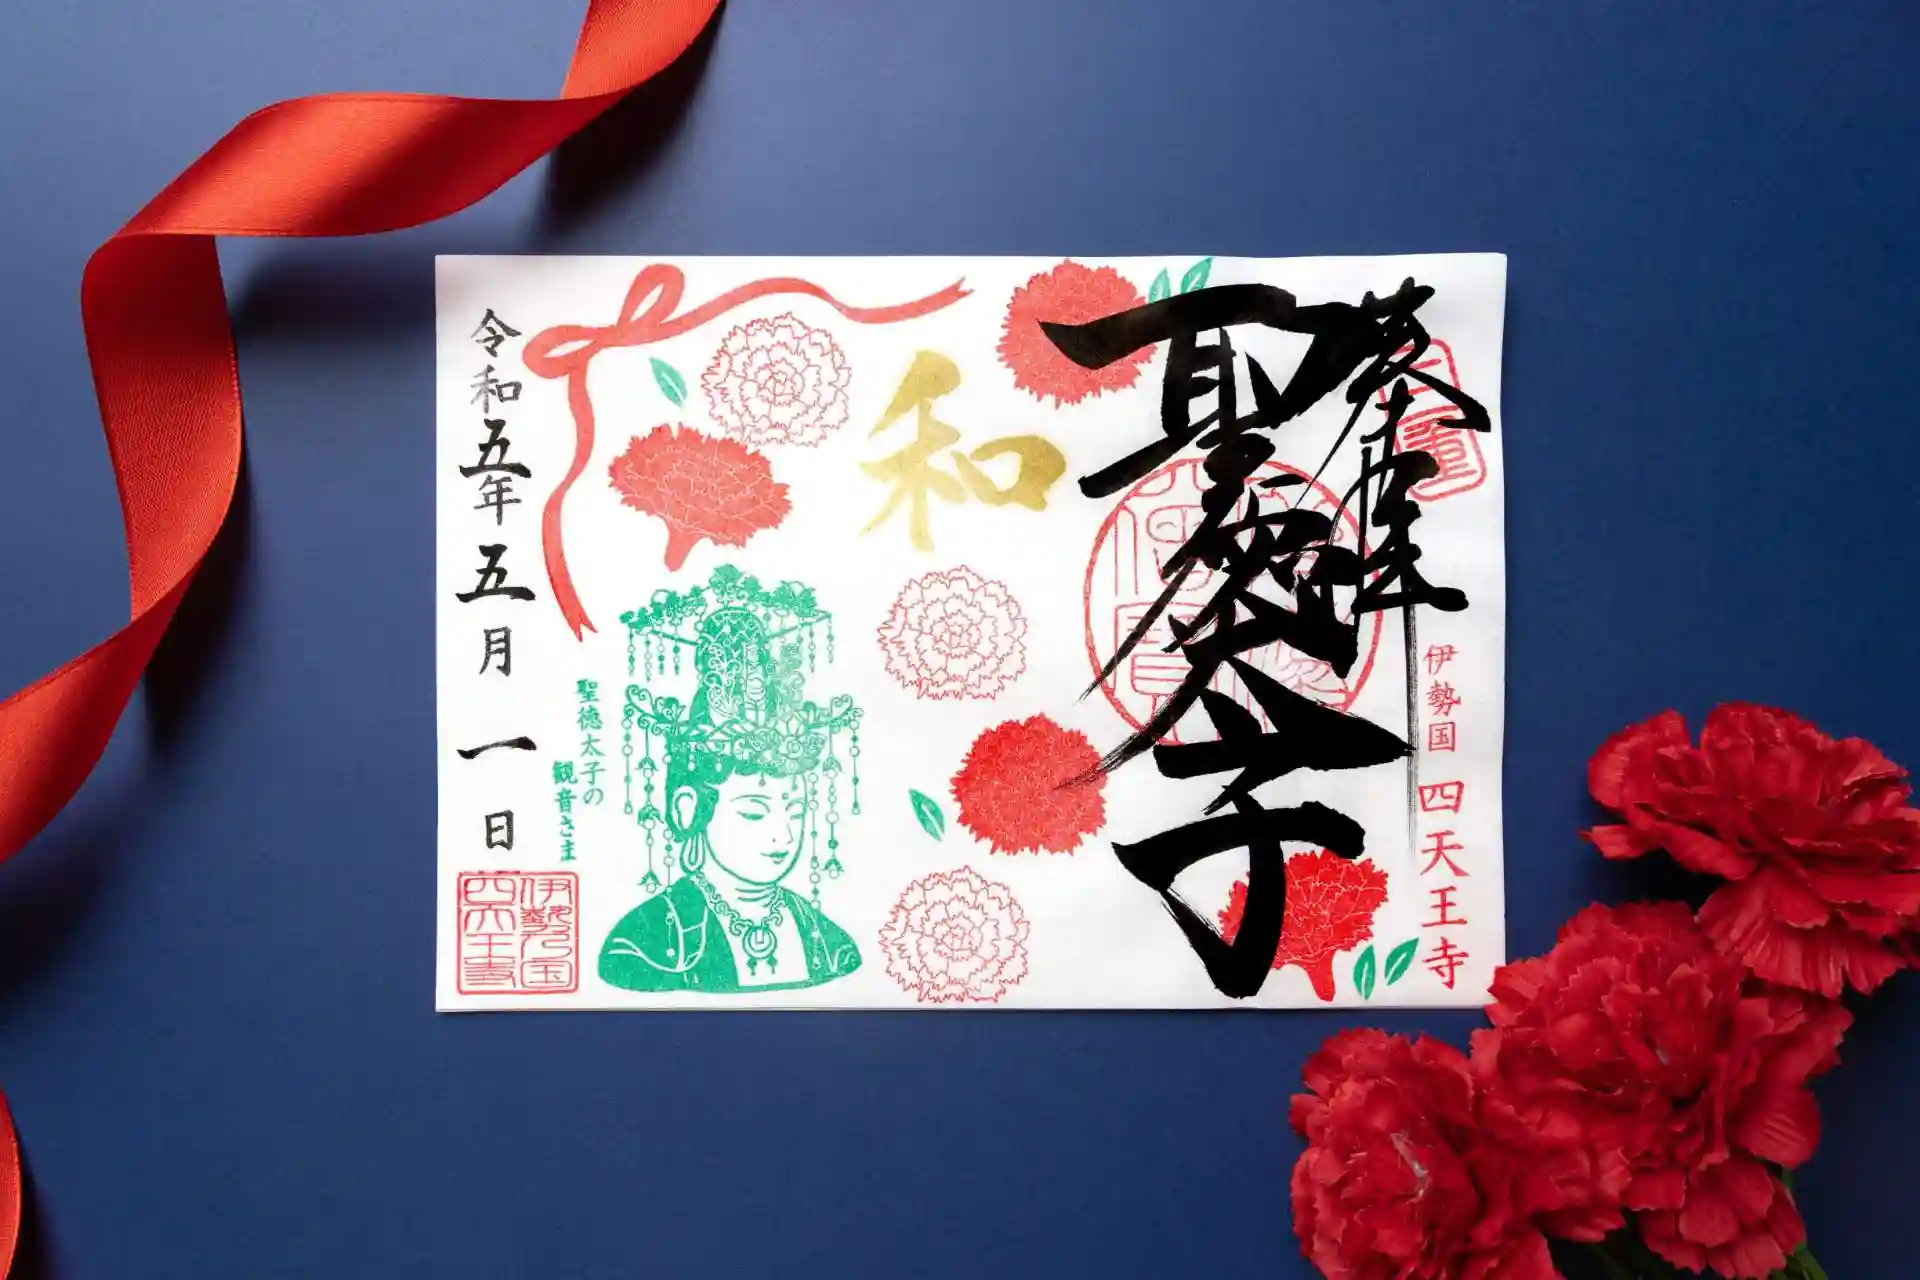 奉拝
三重
聖徳太子
伊勢国 四天王寺
和
聖徳太子の
観音さま
令和五年五月一日
伊勢国
四天王寺